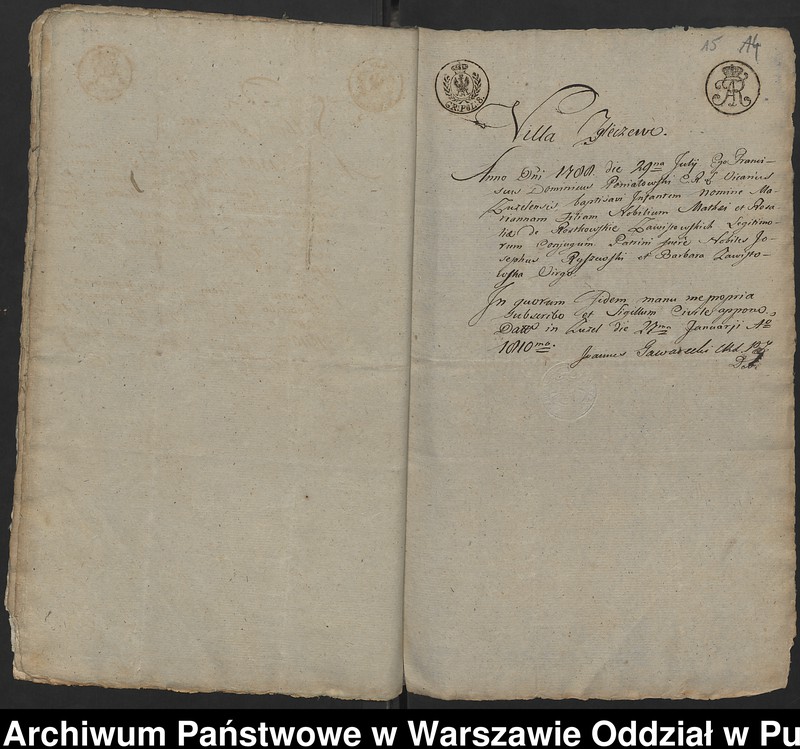 15 A4
GR: POL: 8.
Villa Zęczewi.
Anno Dni 1788. die 29na Julij Ego Franci-
scus Dominicus Poniatowski C.R.L. Vicarius
Zuzelensis baptisavi Infantem nomine Ma-
riannam Filiam Nobilium Mathæi et Rosa-
liæ de Rostkowskie Zawistowskich Legitimo-
rum Conjugum Patrini fuere Nobiles Jo-
sephus Ryszewski et Barbara Zawisto-
wska Virgo.
In quorum Fidem manu mepropria
Subscribo et Sigillum Civile appono.
Datt in Zuzel die 27ma Januarji Ao
1810mo.
Joannes Gawarecki
Archiwum Państwowe w Warszawie Oddział w Pu